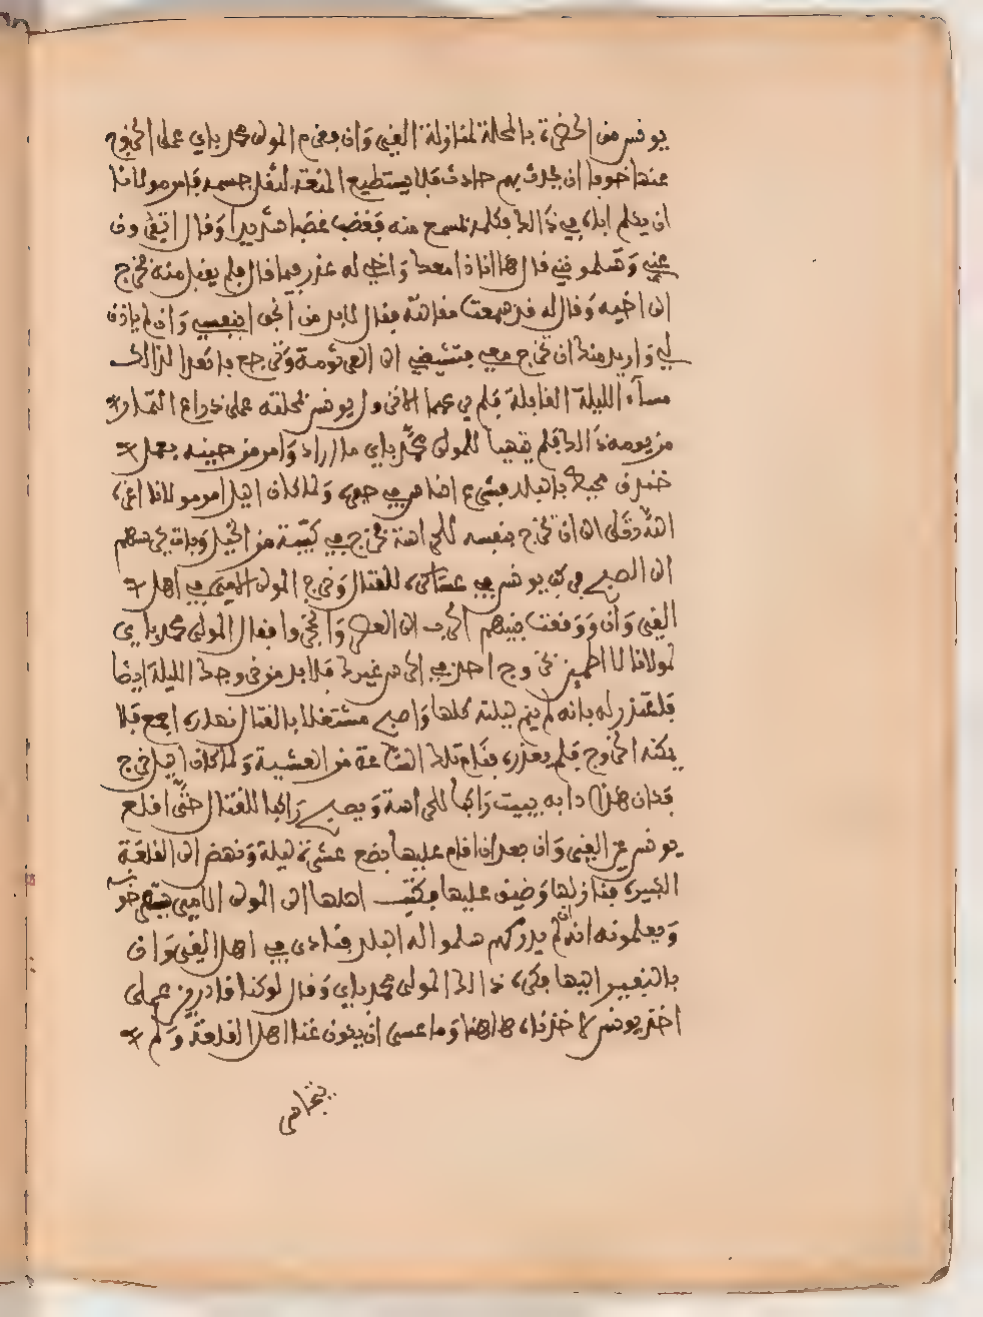 يونس من الحضرة بالمحلة لمنازلة القيروان فعزم المولى محمد باي على الخروج
عنها خوفا ان يحدث بهم حادث فلا يستطيع المنعة لثقل جسمه فامر مولانا
ان يكلم اباه في ذالك فكلمه فسمع منه فغضب غضبا شديدا وقال اتفرون
عني وتسلموني قال ها انا ذا معك واخي له عذر فيما قال فلم يقبل منه فخرج
الى اخيه وقال له قد سمعت مقالته فقال لابد من انجى بنفسي وان لم ياذن
لي واريد منك ان تخرج معي فتشيعني الى وترجع فاتعدا لذالك
مساء الليلة القابلة فلم يرعهما الا نزول يونس بمحلته على ذراع التمار
من يومه ذالك فلم يتهيا للمولى محمد باي ما اراد وامر من حينه بعمل
خندق محيط بالبلد فشرع الناس في حفره ولما كان الليل امر مولانا اعزه
الله تعالى ان يخرج بنفسه للحراسة فخرج في كتيبة من الخيل وبات يحرسهم
الى الصبح فركب يونس في عساكره للقتال وخرج المولى الامير في اهل
القيروان ووقعت بينهم الحرب الى العصر وانحجزوا فقال المولى محمد باي
لمولانا لا اطمئن بخروج احد في الحرس غيرك فلابد من خروجك الليلة ايضا
فاعتذر له بانه لم ينم ليلته كلها واصبح مشتغلا بالقتال نهاره اجمع فلا
يمكنه الخروج فلم يعذره فنام تلك الساعة من العشية ولما كان الليل خرج
فكان هذا دابه يبيت راكبا للحراسة ويصبح راكبا للقتال حتى اقلع
يونس عن القيروان بعد ان اقام عليها بضع عشرة ليلة ونهض الى القلعة
الكبيرة فنازلها وضيق عليها فكتب اهلها الى المولى الامير يستصرخونه
ويعلمونه انه ان لم يدركهم سلموا له البلد فنادى في اهل القيروان
بالنفير اليها فكره ذالك المولى محمد باي وقال لو كنا قادرين على
اخذ يونس لاخذناه هاهنا وما عسى ان يكون غنا اهل القلعة ولم